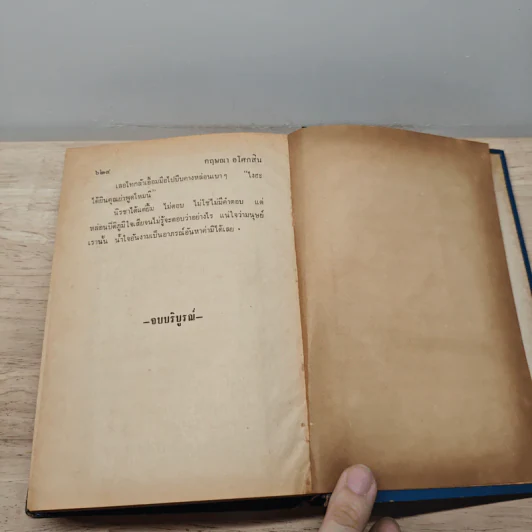 ๖๒๘
กฤษณา อโศกสิน
เธอไพกล้าเอื้อมมือไปบีบคางหล่อนเบา ๆ "ไงฮะ
ได้ยินคุณย่าพูดไหมนี่"
นิรชาได้แต่ยิ้ม ไม่ตอบ ไม่ใช่ไม่มีคำตอบ แต่
หล่อนปีติภูมิใจเสียจนไม่รู้จะตอบว่าอย่างไร แน่ใจว่ามนุษย์
เรานั้น น้ำใจอันงามเป็นอาภรณ์อันหาค่ามิได้เลย •
—จบบริบูรณ์—